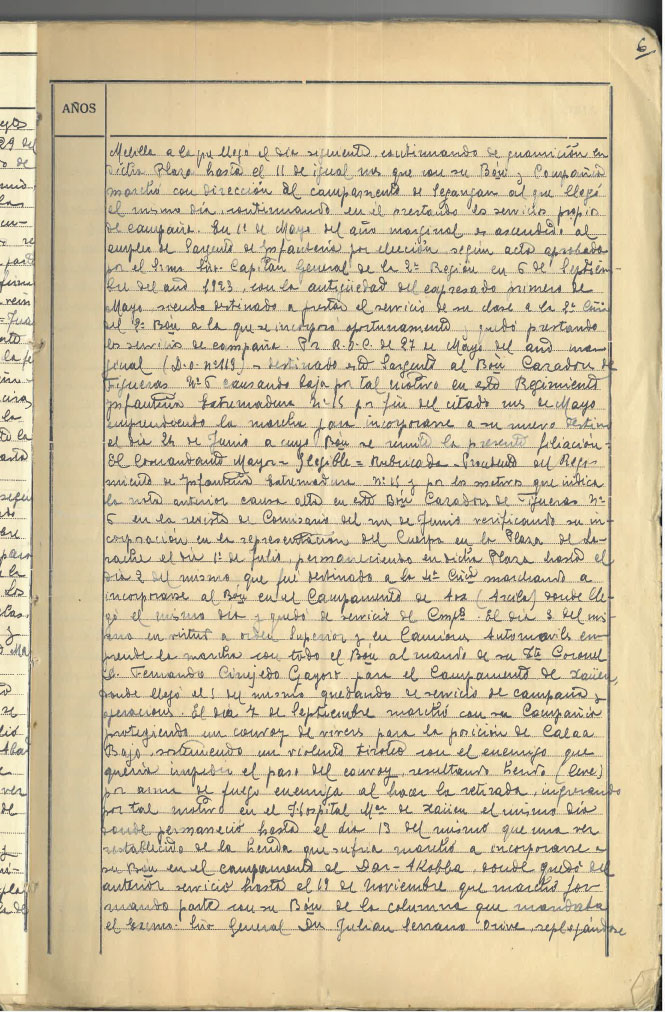 6
AÑOS
Melilla a la que llegó el día siguiente, continuando de guarnición en
dicha Plaza hasta el 11 de igual mes que con su Bón y Compañía
marchó con dirección al campamento de Segangan al que llegó
el mismo día, continuando en él prestando los servicios propios
de campaña. En 1º de Mayo del año marginal es ascendido al
empleo de Sargento de Infantería por elección, según acta aprobada
por el Excmo Señor Capitán General de la 2ª Región en 6 de Septiem-
bre del año 1923, con la antigüedad del expresado primero de
Mayo siendo destinado a prestar el servicio de su clase a la 2ª Cñía
del Bón a la que se incorporó oportunamente, quedó prestando
los servicios de campaña. Por R.O.C. de 27 de Mayo del año mar-
ginal (D.O. nº 119) es destinado este Sargento al Bón Cazadores de
Figueras Nº 6 causando baja por tal motivo en este Regimiento
Infantería Extremadura Nº 15 por fin del citado mes de Mayo
emprendiendo la marcha para incorporarse a su nuevo destino
el día 24 de Junio a cuyo Bón se remite la presente filiación =
El Comandante Mayor = Ilegible = Rubricada = Procedente del Regi-
miento de Infantería Extremadura nº 15 y por los motivos que indica
la nota anterior causa alta en este Bón Cazadores de Figueras Nº
6 en la revista de Comisario del mes de Junio verificando su in-
corporación en la representación del Cuerpo en la Plaza de La-
rache el día 1º de Julio, permaneciendo en dicha Plaza hasta el
día 2 del mismo que fué destinado a la 4ª Cñía marchando a
incorporarse al Bón en el Campamento de (Arcila) donde lle-
gó el mismo día y quedó de servicio de Campª. El día 3 del mis-
mo en virtud a orden Superior y en Camiones Automóviles em-
prende la marcha con todo el Bón al mando de su Tte Coronel
D. Fernando para el Campamento de Xauen,
donde llegó el 5 del mismo quedando de servicio de campaña y
operaciones. El día 7 de Septiembre marchó con su Compañía
protegiendo un convoy de víveres para la posición de Calaa
Bajo, sosteniendo un violento tiroteo con el enemigo que
quería impedir el paso del convoy, resultando herido (leve)
por arma de fuego enemiga al hacer la retirada, ingresando
por tal motivo en el Hospital Mar de Xauen el mismo día
donde permaneció hasta el día 13 del mismo que una vez
restablecido de la herida que sufría marchó a incorporarse a
su Bón en el campamento de Dar-Akobba, donde quedó del
anterior servicio hasta el 19 de Noviembre que marchó for-
mando parte con su Bón de la columna que mandaba
el Excmo. Señor General Dn Julian Serrano Orive, replegándose